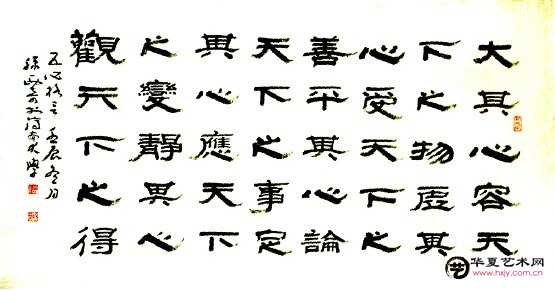 大其心容天
下之物虛其
心受天下之
善平其心論
天下之事定
其心應天下
之變靜其心
觀天下之得
五心格言 壬辰冬月
於濟南大學
华夏艺术网
www.hxjy.com.cn